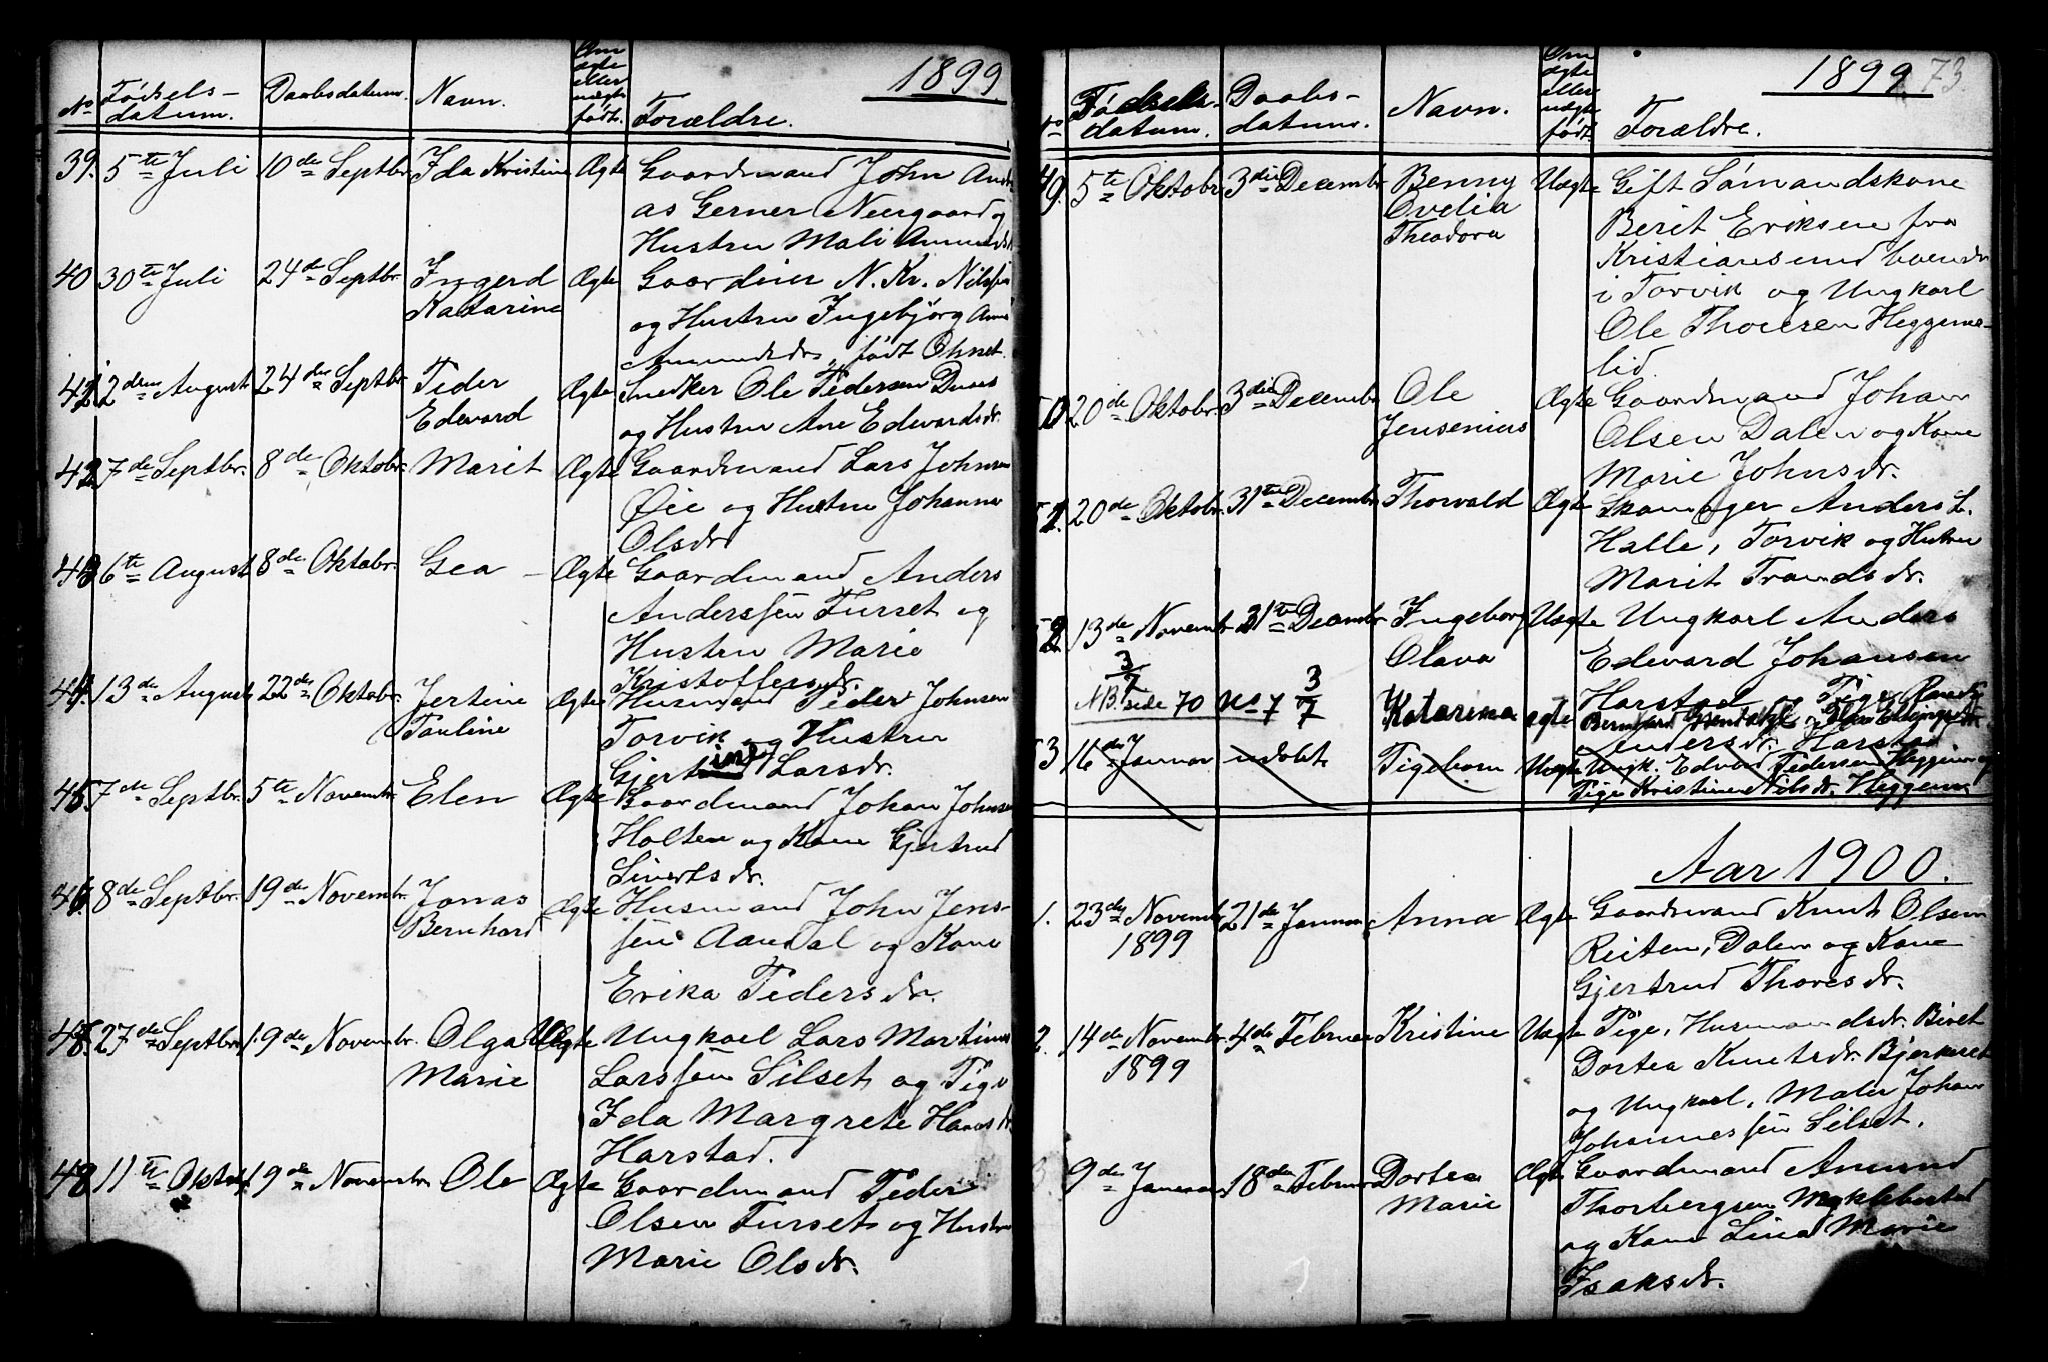 1899
No Fødsels-
datum. Daabsdatum. Navn. Om
ægte
eller
uægte
født. Forældre.
39. 5te Juli 10de Septbr. Ida Kristine Ægte Gaardmand John Andre
as Gerner Neergaard og
Hustru Mali Amundsdr
40 30te Juli 24de Septbr. Ingerd Ægte Gaardeier N. Kr. Nilssen
Katarina og Hustru Ingebjörg Anne
Amundsdr, født Ohnset.
41. 2den August 24de Septbr. Peder Ægte Snedker Ole Pedersen
Edevard og Hustru Ane Edvardsdr.
42. 7de Septbr. 8de Oktobr. Marit Ægte Gaardmand Lars Johnsen
Øie og Hustru Johanna
Olsdr
43. 6te August 8de Oktobr. Gea – Ægte Gaardmand Anders
Anderssen Furset og
Hustru Marie
Kristoffersdr.
44. 13de August 22de Oktobr. Jertine Ægte Husmand Peder Johnsen
Pauline Torvik og Hustru
Larsdr.
45. 7de Septbr. 5te Novembr. Elen Ægte Gaardmand Johan Johnsen
Holten og Kone Gjertrud
Sivertsdr.
46. 8de Septbr. 19de Novembr. Jonas Ægte Husmand John Jens-
Bernhard sen Aandal og Kone
Erika Pedersdr.
27de Septbr. 19de Novembr. Olga Uægte Ungkarl Lars Martinus
Marie Larssen Silset og Pige
Ida Margrete Hansdr
Harstad.
48. 11te Oktobr. 19de Novembr. Ole Ægte Gaardmand Peder
Olsen Furset og Hustru
Marie Olsdr.
1899 73.
No Fødsels-
datum. Daabs-
datum. Navn. Om
ægte
eller
uægte
født Forældre.
49. 5te Oktobr. 3die Decembr. Benny Uægte Gift Sömandskone
Ovelia Berit Eriksen fra
Theodora Kristiansund boende
i Torvik og Ungkarl
Ole Thoresen Heggeme-
lid.
50. 20de Oktobr. 3die Decembr. Ole Ægte Gaardmand Johan
Jensenius Olsen Dalen og Kone
Marie Johnsdr.
51. 20de Oktobr. 31te Decembr. Thorvald Ægte Skomager Anders L.
Halle, Torvik og Hustru
Marit Trondsdr.
52. 13de Novembr. 31te Decembr. Ingeborg Uægte Ungkarl Anders
Olava Edevard Johansen
Harstad og Pige Randi
Andersdr. Harstad
3/7
NB. side 70 No 7 3/7 Katarina ægte Bernhard
53 16de Januar udöbt Pigebarn Uægte Ungk. Edvard Pedersen Heggem og
Pige Kristine Nilsdr. Heggem.
Aar 1900.
1. 23de Novembr. 21de Januar Anna Ægte Gaardmand Knut Olsen
1899 Reiten, Dalen og Kone
Gjertrud Thoresdr.
2. 14de Novembr. 4de Februar Kristine Uægte Pige, Husmandsdr. Beret
1899 Dortea Knutsdr. Bjerkeset
og Ungkarl, Maler Johan
Johannessen Silset.
3. 9de Januar 18de Februar Dortea Ægte Gaardmand Amund
Marie Thorbergsen Myklebostad
og Kone Lina Marie
Isaksdr.